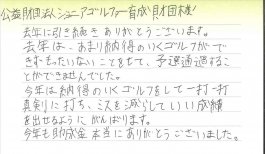 公益財団法人ジュニアゴルファー育成財団様!
去年に引き続きありがとうございます。
去年は、あまり納得のいくゴルフができず
もったいないことをして、予選通過する
ことができませんでした。
今年は納得のいくゴルフをして一打一打
真剣に打ち、ミスを減らしていい成績
を出せるようにがんばります。
今年も助成金本当にありがとうございました。